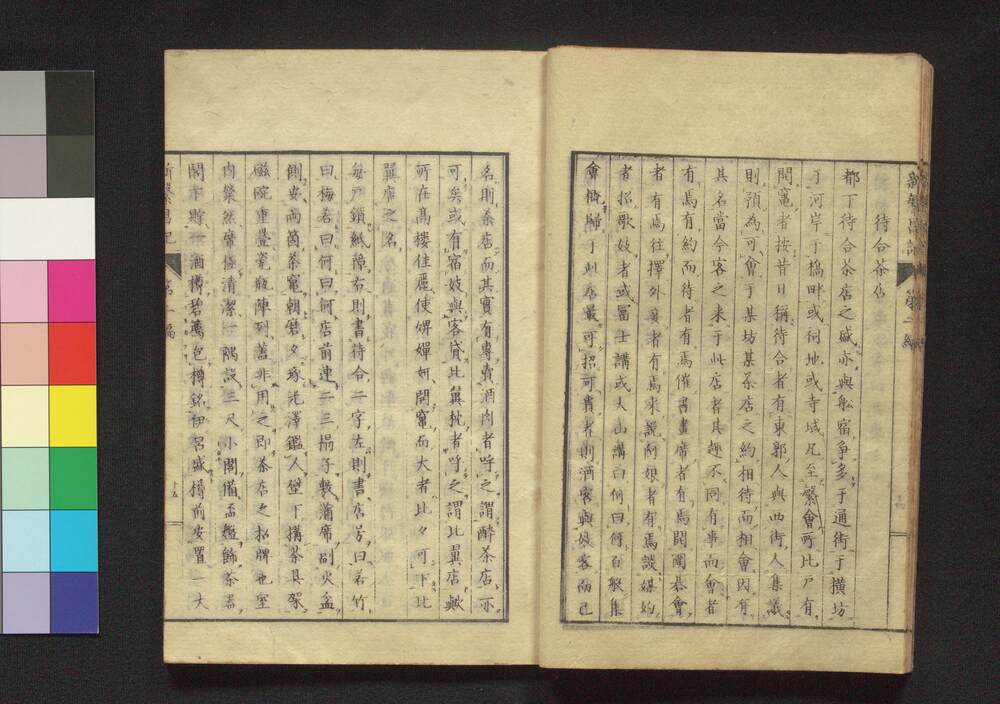 待合茶店
都下待合茶店之盛亦與船宿爭多于通街于橫坊
于河岸于橋畔或祠地或寺域凡至繁會所比戶有
開竈者按昔日稱待合者有東郭人與西街人集議
則預為可會于某坊某茶店之約相待而相會因有
其名當今客之来于此店者其趣不同有事而會者
有焉有約而待者有焉催書畫席者有焉開圍碁會
者有焉往擇外妾者有焉来説阿娘者有焉談媒妁
者招歌妓者或冨士講或大山講曰何曰何百般集
會概歸于此店最可招可貴者則酒客與妓客而已
名則茶店而其實有專賣酒肉者呼之謂醉茶店亦
可矣或有宿妓與客貸比翼枕者呼之謂比翼店歟
所在高樓佳麗使婢嬋妍開竈而大者比々可下比
翼店之名
每戶鎖紙障右則書待合二字左則書店号曰若竹
曰梅若曰何曰何店前連二三搨子敷蒲席副火盆
側安両箇茶竈朝磨夕琢光澤鑑人壁下搆茶具架
磁碗重疊瓷瓶陣列蓋非用之即茶店之招牌也室
内粲然席倍清潔隅設三尺小閣備盃盤飾茶器
閣下貯酒樽碧萬包樽銘伊呂盛樽前安置一大
新繁昌記
第二編
十五